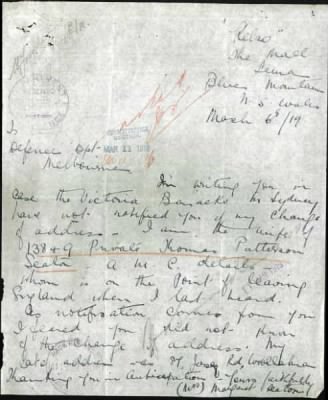 The Mall
Leura
Blue Mountains
N. S. Wales
March 6th/19
To
Defence Dpt
Melbourne
MAR 13 1919
I'm writing you in
case the Victoria Barracks in Sydney
have not notified you of my change
of address. I am the wife of
Private Thomas Patterson
Seaton A M C details
whom is on the point of leaving
England when I last heard.
As notification comes from you
I feared you did not know
of the change of address. My
late address was Rd, Woollahra
Thanking you in Anticipation Yours faithfully
(Mrs) Margaret Seaton